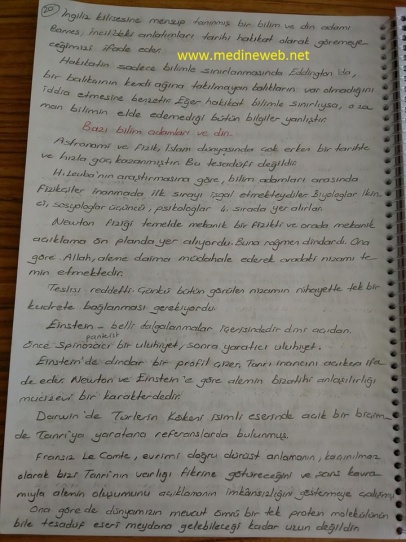 20
İngiliz kilisesine mensup tanınmış bir bilim ve din adamı
Barnes, İncil'deki anlatımları tarihi hakikat olarak göremeye
ceğimizi ifade eder.
www.medineweb.net
Hakikatin sadece bilimle sınırlanmasında Eddington'da,
bir balıkçının kendi ağına takılmayan balıkların var olmadığını
iddia etmesine benzetir. Eğer hakikat bilimle sınırlıysa, o za
man bilimin elde edemediği bütün bilgiler yanlıştır.
Bazı bilim adamları ve din.
Astronomi ve fizik, İslam dünyasında çok erken bir tarihte
ve hızla güç kazanmıştır. Bu tesadüfi değildir.
araştırmasına göre, bilim adamları arasında
Fizikçiler inanmada ilk sırayı işgal etmekteydiler. Biyologlar ikin
ci, sosyologlar üçüncü, psikologlar 4. sırada yer alırlar.
Newton fiziği temelde mekanik bir fizikti ve orada mekanik
açıklama ön planda yer alıyordu. Buna rağmen dindardı. Ona
göre Allah, aleme daima müdahale ederek oradaki nizamı te
min etmektedir.
Teslisi reddetti. Çünkü bütün görülen nizamın nihayette tek bir
kudrete bağlanması gerekiyordu.
Einstein - belli dalgalanmalar içerisindedir dini açıdan.
panteist
Önce Spinozacı bir uluhiyet, sonra yaratıcı uluhiyet.
Einstein'de dindar bir profil çizer. Tanrı inancını açıkça ifa
de eder. Newton ve Einstein'e göre alemin bizatihi anlaşılırlığı
mucizevi bir karakterdedir.
Darwin'de Türlerin Kökeni isimli eserinde açık bir biçim
de Tanrı'ya yaratana referanslarda bulunmuş.
Fransız Le Comte, evrimi doğru dürüst anlamanın, kaçınılmaz
olarak bizi Tanrı'nın varlığı fikrine götüreceğini ve şans kavra
mıyla alemin oluşumunu açıklamanın imkansızlığını göstermeye çalışmış
Ona göre de dünyamızın mevcut ömrü bir tek protein molekülünün
bile tesadüf eseri meydana gelebileceği kadar uzun değildir.